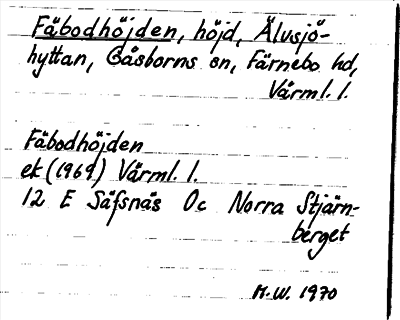 Fäbodhöjden, höjd, Älvsjö-
hyttan, Gåsborns sn, Färnebo hd,
Värml. l.
Fäbodhöjden
ek (1969) Värml. l.
12 E Säfsnäs Oc Norra Stjärn-
berget
M.W. 1970